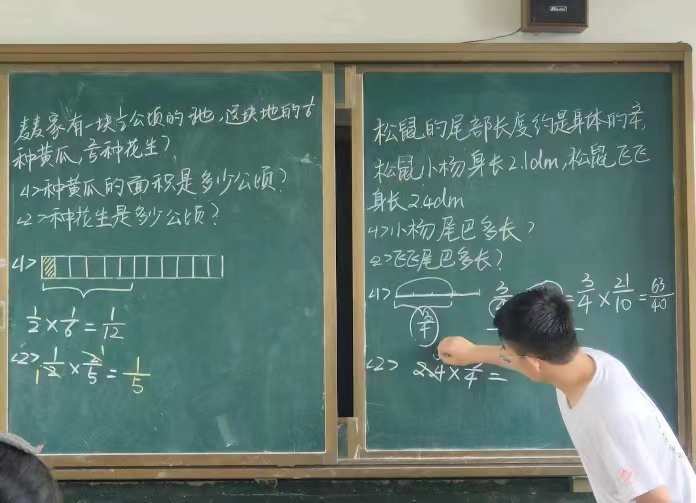 麦麦家有一块1/2公顷的地,这块地的1/6
种黄瓜,种花生)
<1>种黄瓜的面积是多少公顷?
<2>种花生是多少公顷?
<1>
1/2×1/6=1/12
<2>1/2×2/5=1/5
松鼠的尾部长度约是身体的3/4,
松鼠小杨身长2.1dm,松鼠飞飞
身长2.4dm
<1>小杨尾巴多长?
<2>飞飞尾巴多长?
<1> 3/4 =3/4×21/10=63/40
<2> 2.4× /4=